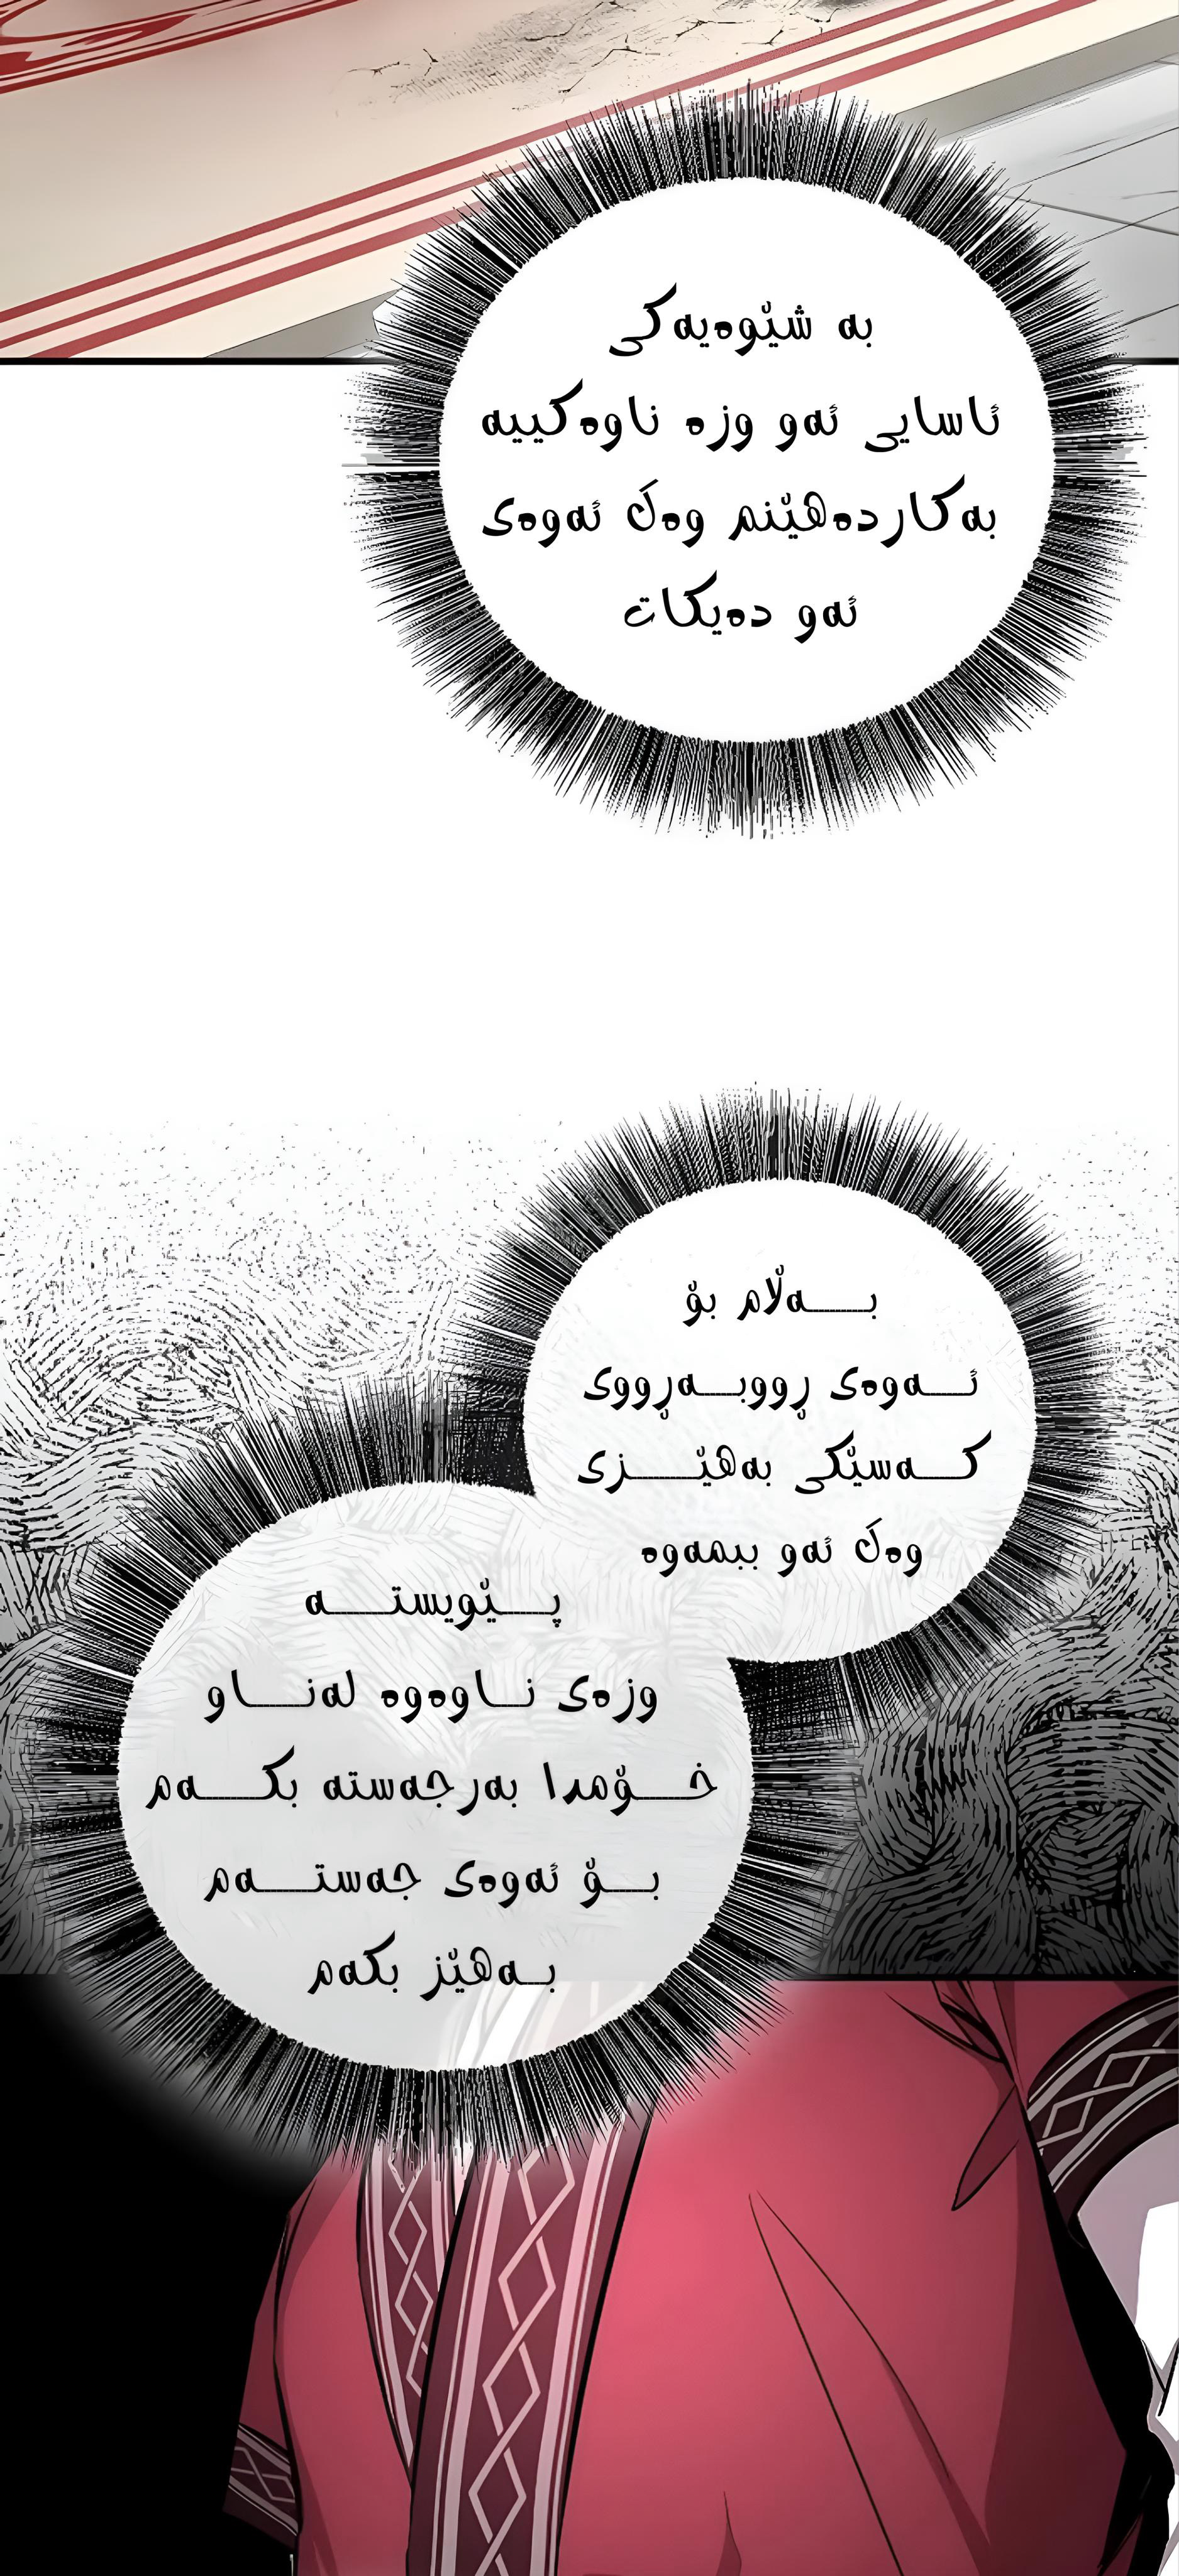 بە شێوەیەکی
ئاسایی ئەو وزە ناوەکییە
بەکاردەهێنم وەک ئەوەی
ئەو دەیکات
بـــەڵام بۆ
ئـــەوەی ڕووبـــەڕووی
کـــەسێکی بەهێـــزی
وەک ئەو ببمەوە
پـــێویستـــە
وزەی نـــاوەوە لەنـــاو
خـــۆمدا بەرجەستە بکـــەم
بـــۆ ئەوەی جەستـــەم
بـەهێز بکەم